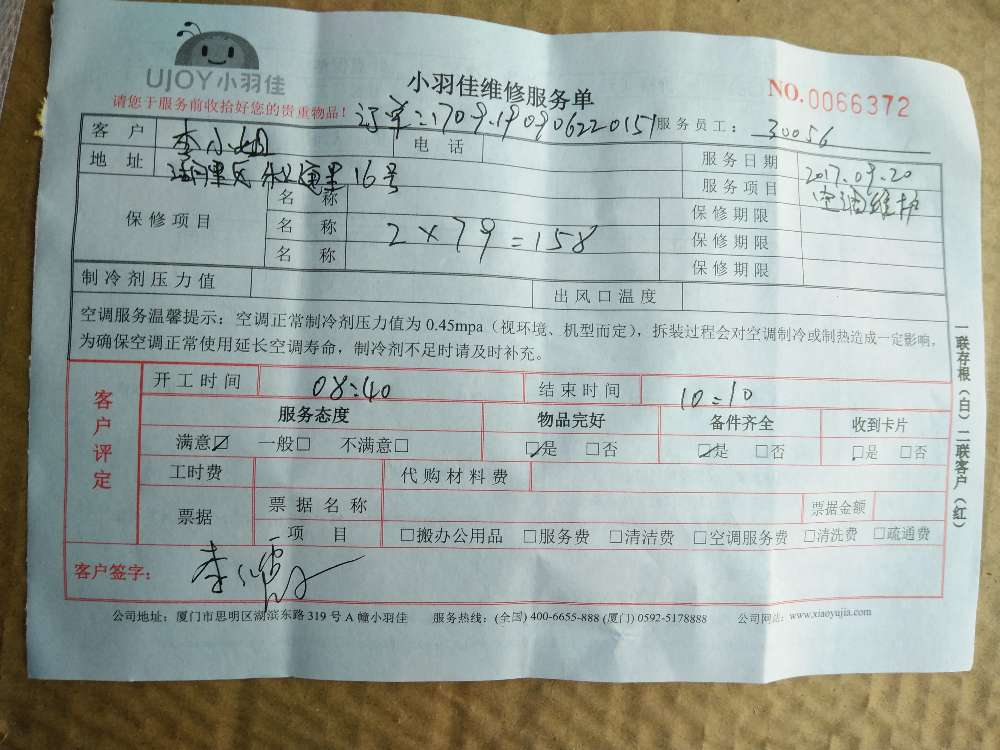 UJOY小羽佳
小羽佳维修服务单
NO.0066372
请您于服务前收拾好您的贵重物品！
订单:1709.190906220151
服务员工： 30056
客户 李小姐 电话 服务日期 2017.09.20
地址 16号 服务项目 空调维护
保修项目 名称 保修期限
名称 2×79=158 保修期限
名称 保修期限
制冷剂压力值 出风口温度
空调服务温馨提示：空调正常制冷剂压力值为 0.45mpa（视环境、机型而定），拆装过程会对空调制冷或制热造成一定影响，
为确保空调正常使用延长空调寿命，制冷剂不足时请及时补充。
客户评定
开工时间 08:40 结束时间 10:10
服务态度 物品完好 备件齐全 收到卡片
满意☑ 一般□ 不满意□ ☑是 □否 ☑是 □否 ☑是 □否
工时费 代购材料费
票据 票据名称 票据金额
项目 □搬办公用品 □服务费 □清洁费 □空调服务费 □清洗费 □疏通费
客户签字：
公司地址：厦门市思明区湖滨东路 319 号 A 幢小羽佳 服务热线：(全国) 400-6655-888 (厦门) 0592-5178888 公司网站：www.xiaoyujia.com
一联存根（白）二联客户（红）